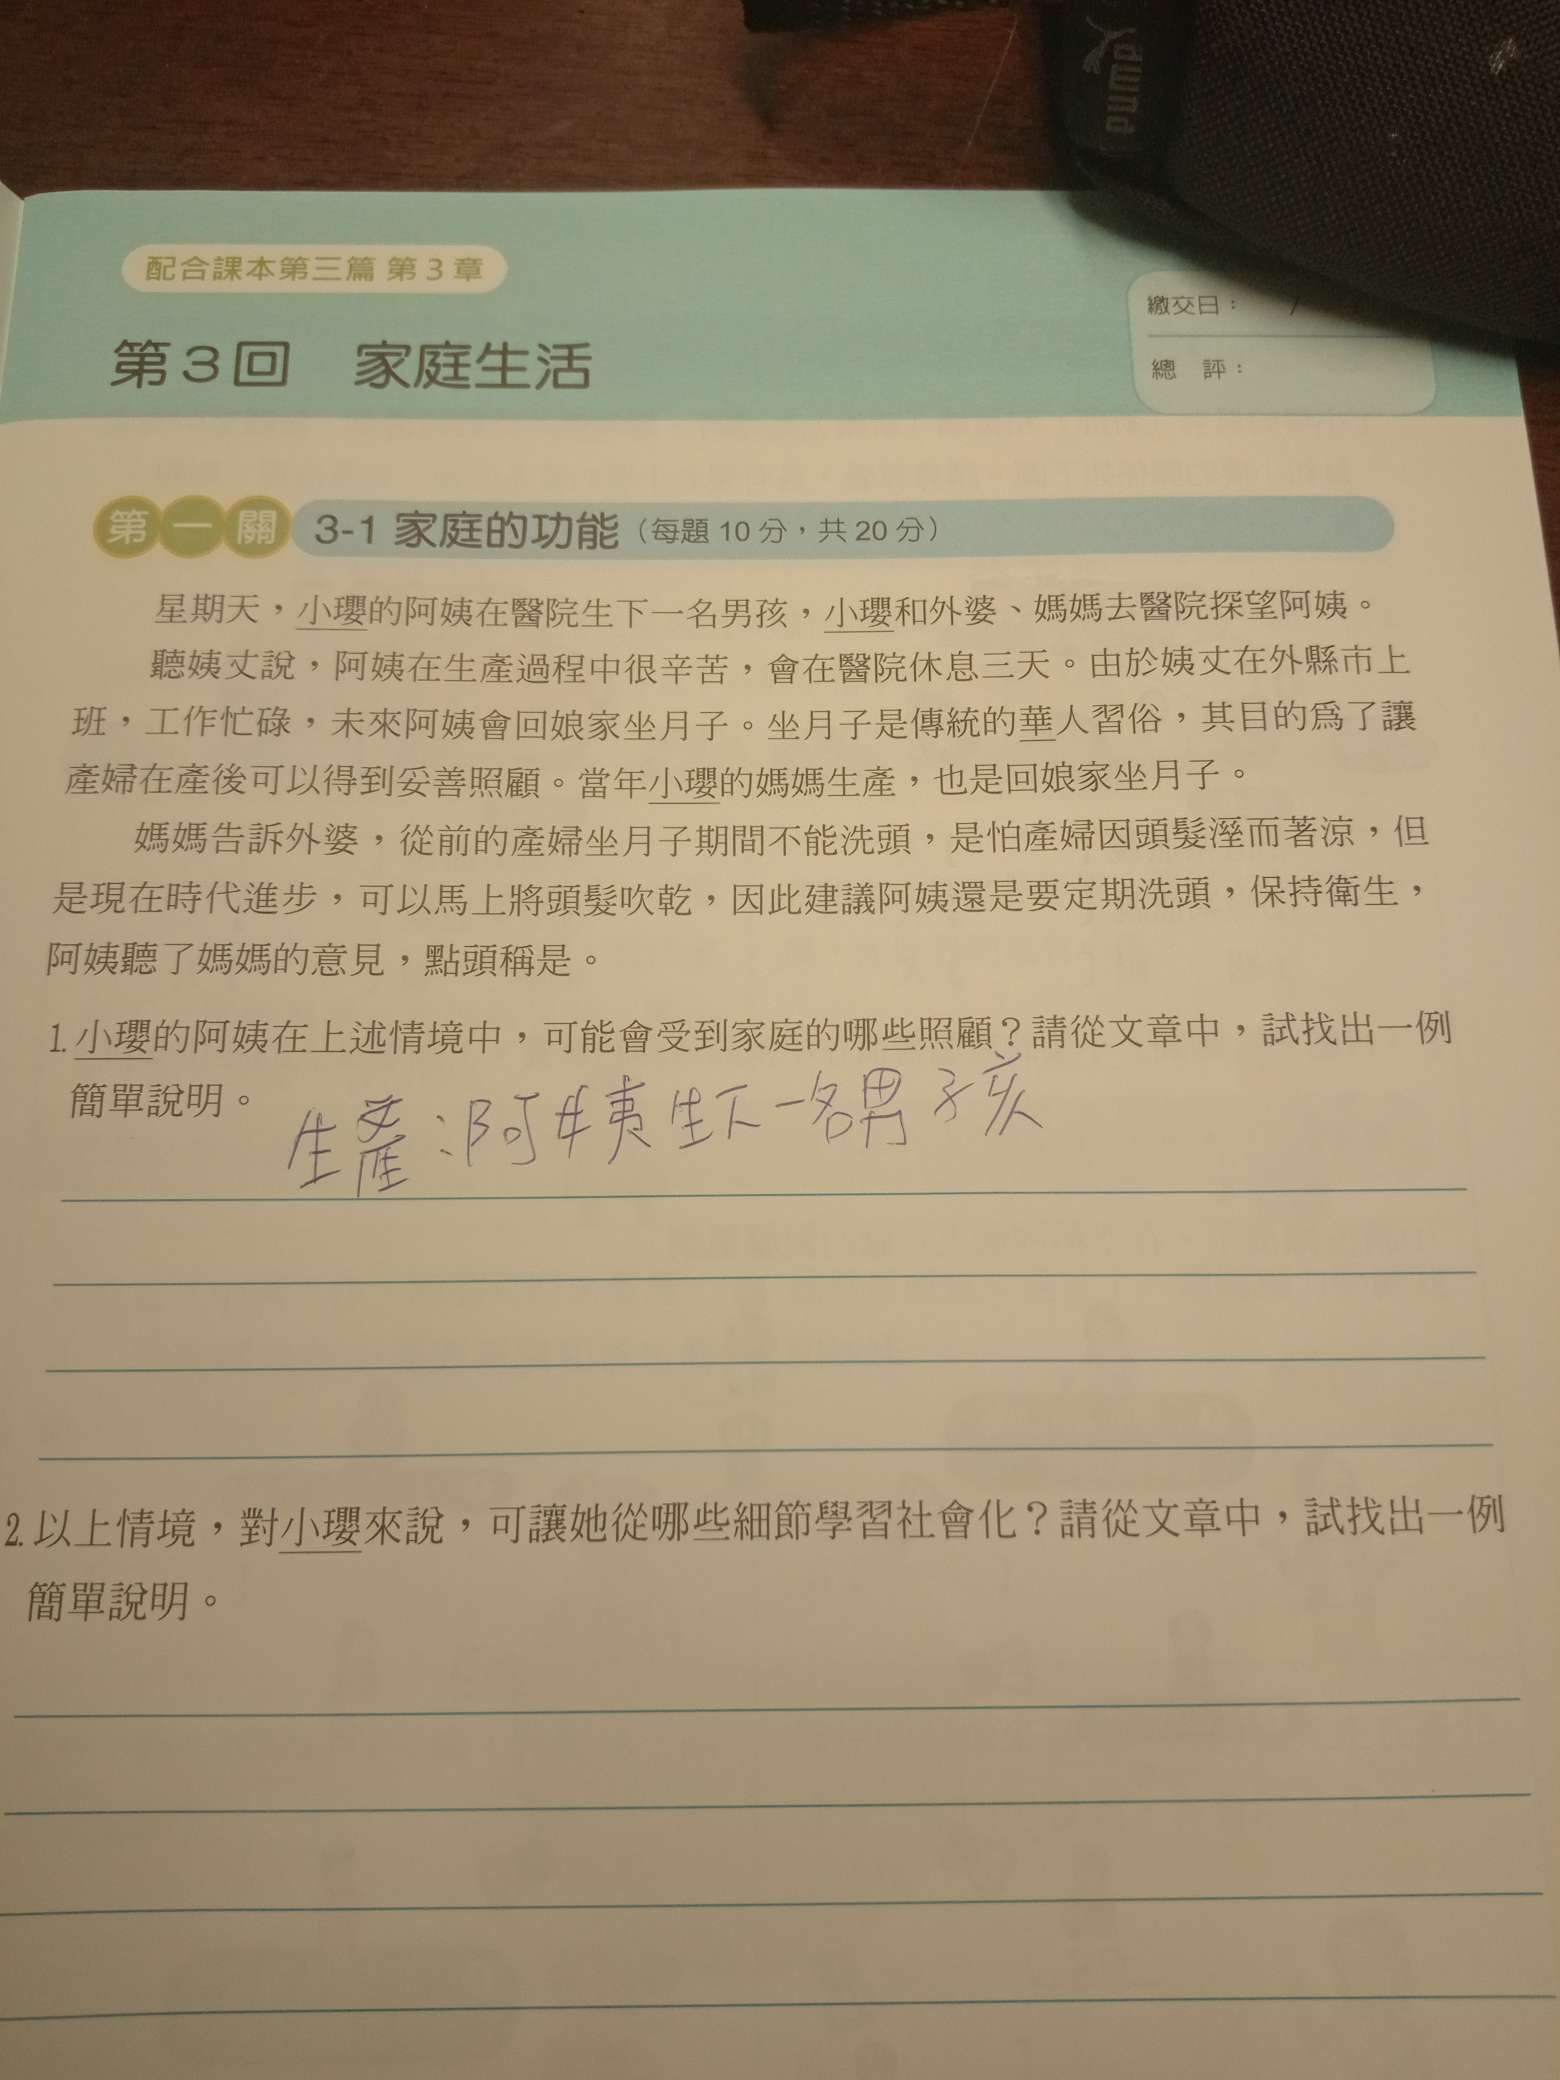 PUMA
配合課本第三篇 第3章
繳交日： /
第3回 家庭生活
總 評：
第一關 3-1 家庭的功能（每題10分，共20分）
星期天，小瓔的阿姨在醫院生下一名男孩，小瓔和外婆、媽媽去醫院探望阿姨。
聽姨丈說，阿姨在生產過程中很辛苦，會在醫院休息三天。由於姨丈在外縣市上
班，工作忙碌，未來阿姨會回娘家坐月子。坐月子是傳統的華人習俗，其目的為了讓
產婦在產後可以得到妥善照顧。當年小瓔的媽媽生產，也是回娘家坐月子。
媽媽告訴外婆，從前的產婦坐月子期間不能洗頭，是怕產婦因頭髮溼而著涼，但
是現在時代進步，可以馬上將頭髮吹乾，因此建議阿姨還是要定期洗頭，保持衛生，
阿姨聽了媽媽的意見，點頭稱是。
1.小瓔的阿姨在上述情境中，可能會受到家庭的哪些照顧？請從文章中，試找出一例
簡單說明。
生產：阿姨生下一名男孩
2.以上情境，對小瓔來說，可讓她從哪些細節學習社會化？請從文章中，試找出一例
簡單說明。